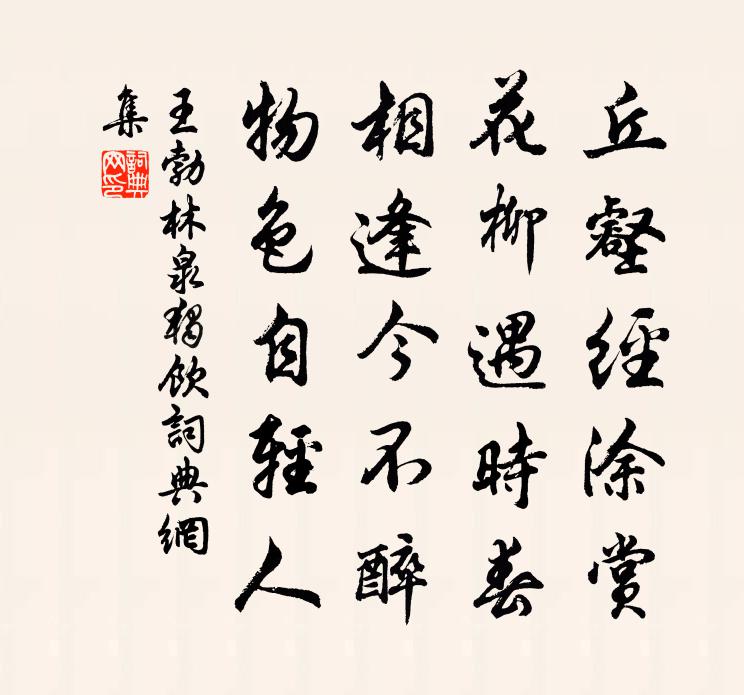 丘壑經涂賞
花柳遇時春
相逢今不醉
物色自輕人
王勃林泉獨飲詞典網
集
詞典網印